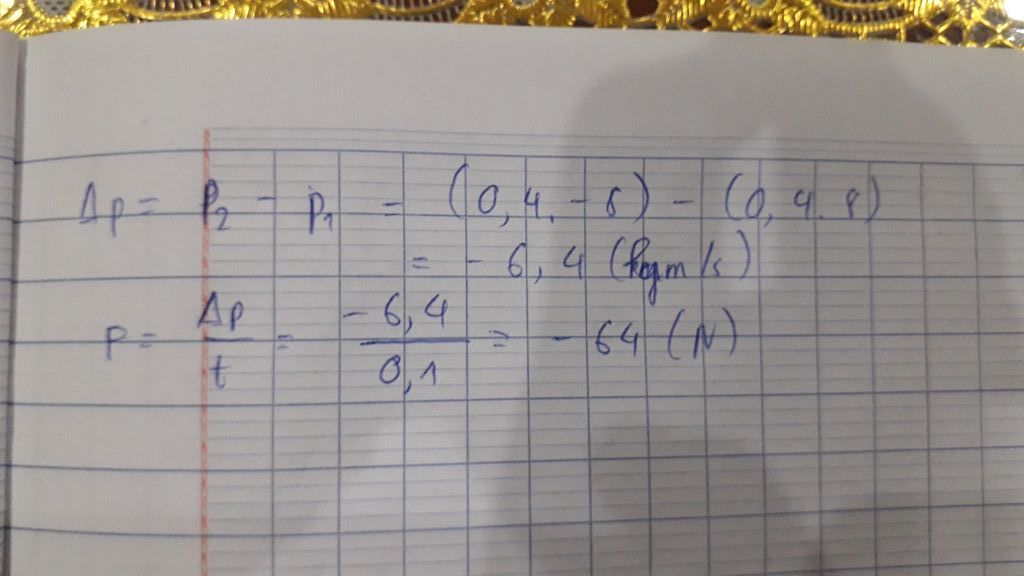 Δp = p₂ - p₁ = (0,4. -8) - (0,4.8)
= - 6,4 (kgm/s)
F = Δp/t = -6,4/0,1 = - 64 (N)